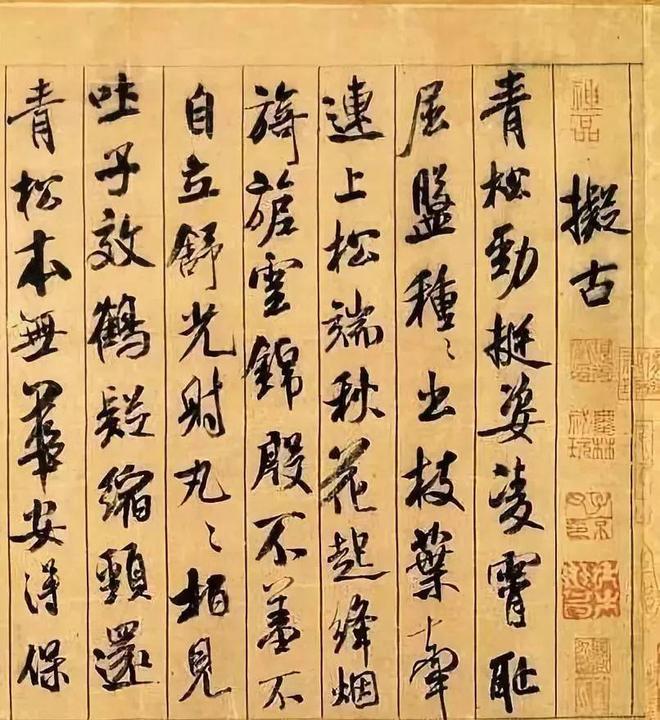 神品
擬古
青松勁挺姿凌霄耻
屈盤種〻出枝葉牽
連上松端秋花起絳烟
旖旎雲錦殷不羞不
自立舒光射丸〻柏見
吐子效鶴疑縮頸還
青松本無華安得保